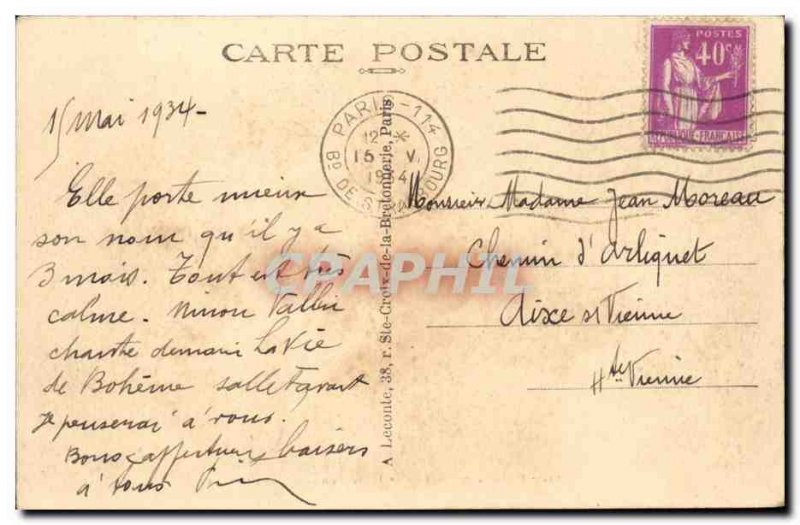 CARTE POSTALE
POSTES
40c
RÉPUBLIQUE FRANÇAISE
PARIS-114
12 *
15 V.
1934
Bd DE STRASBOURG
15 Mai 1934-
Elle porte mieux
son nom qu'il y a
3 mois. Tout est très
calme. Ninon Vallin
chante demain La Vie
de Bohème salle Favart
Je penserai à vous.
Bons, affectueux baisers
à tous
A Leconte, 38, r. Ste-Croix-de-la-Bretonnerie, Paris
Monsieur Madame Jean Moreau
Chemin d'Arliquet
Aixe s/ Vienne
Hte Vienne
CPAPHIL